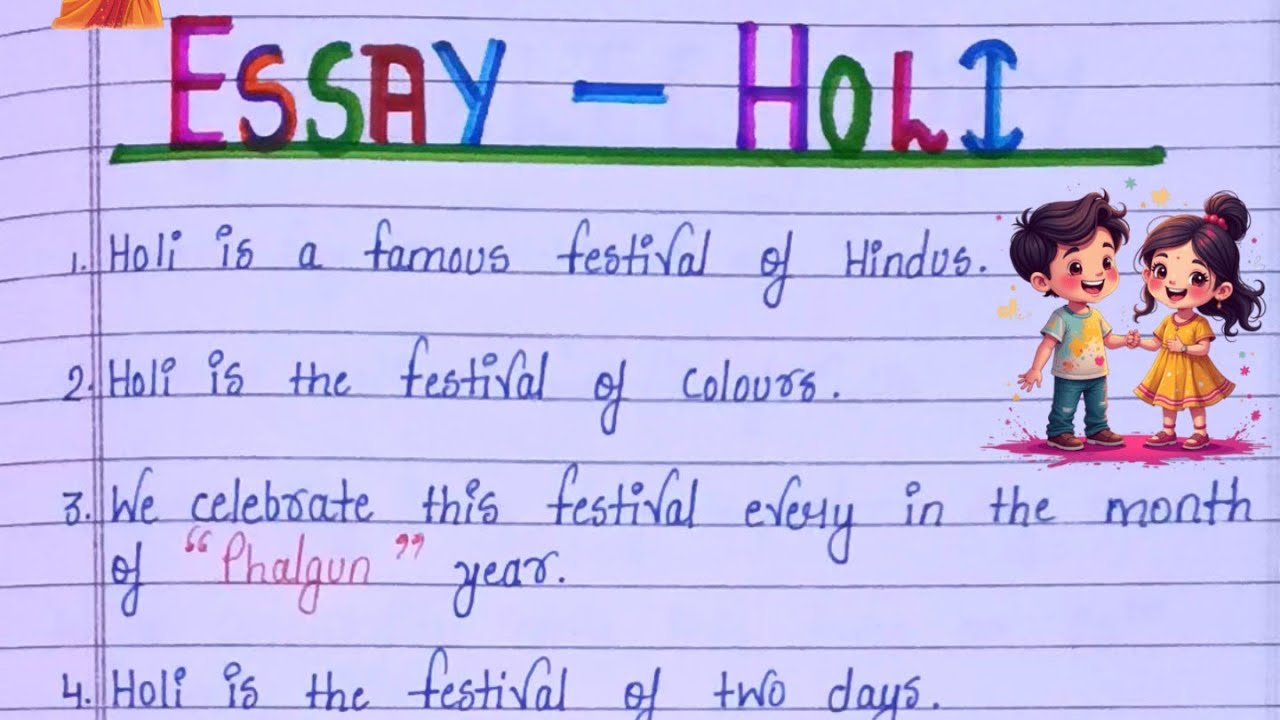 ESSAY - HOLI
1. Holi is a famous festival of Hindus.
2. Holi is the festival of colours.
3. We celebrate this festival every in the month
of "Phalgun" year.
4. Holi is the festival of two days.